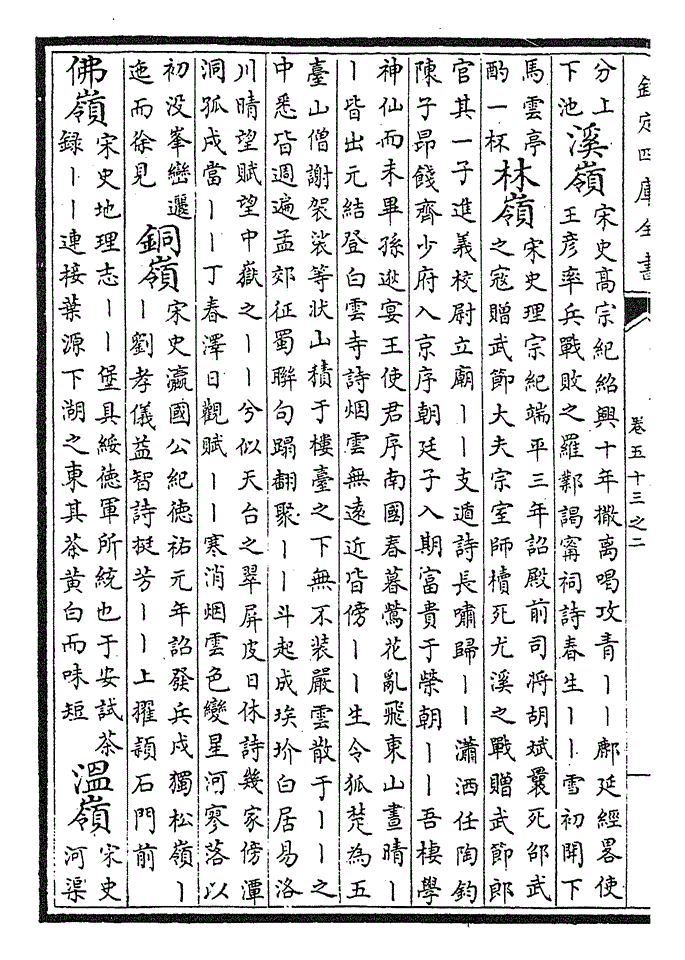 欽定四庫全書
卷五十三之二
分上
下池
溪嶺
宋史高宗紀紹興十年撒离喝攻青丨丨鄜延經畧使
王彥率兵戰敗之羅鄴謁甯祠詩春生丨丨雪初開下
馬雲亭
酌一杯
林嶺
宋史理宗紀端平三年詔殿前司將胡斌曩死邵武
之寇贈武節大夫宗室師檟死尤溪之戰贈武節郎
官其一子進義校尉立廟丨丨支遁詩長嘯歸丨丨瀟洒任陶鈞
陳子昂餞齊少府入京序朝廷子入期富貴于榮朝丨丨吾棲學
神仙而未畢孫逖宴王使君序南國春暮鶯花亂飛東山晝晴丨
丨皆出元結登白雲寺詩烟雲無遠近皆傍丨丨生令狐楚為五
臺山僧謝袈裟等狀山積于樓臺之下無不裝嚴雲散于丨丨之
中悉皆週遍孟郊征蜀聯句蹋翻聚丨丨斗起成埃圿白居易洛
川晴望賦望中嶽之丨丨兮似天台之翠屏皮日休詩幾家傍潭
洞孤戍當丨丨丁春澤日觀賦丨丨寒消烟雲色變星河寥落以
初没峯巒邐
迤而徐見
銅嶺
宋史瀛國公紀德祐元年詔發兵戍獨松嶺丨
丨劉孝儀益智詩挺芳丨丨上擢頴石門前
佛嶺
宋史地理志丨丨堡具綏徳軍所統也于安試茶
録丨丨連接葉源下湖之東其茶黄白而味短
溫嶺
宋史
河渠